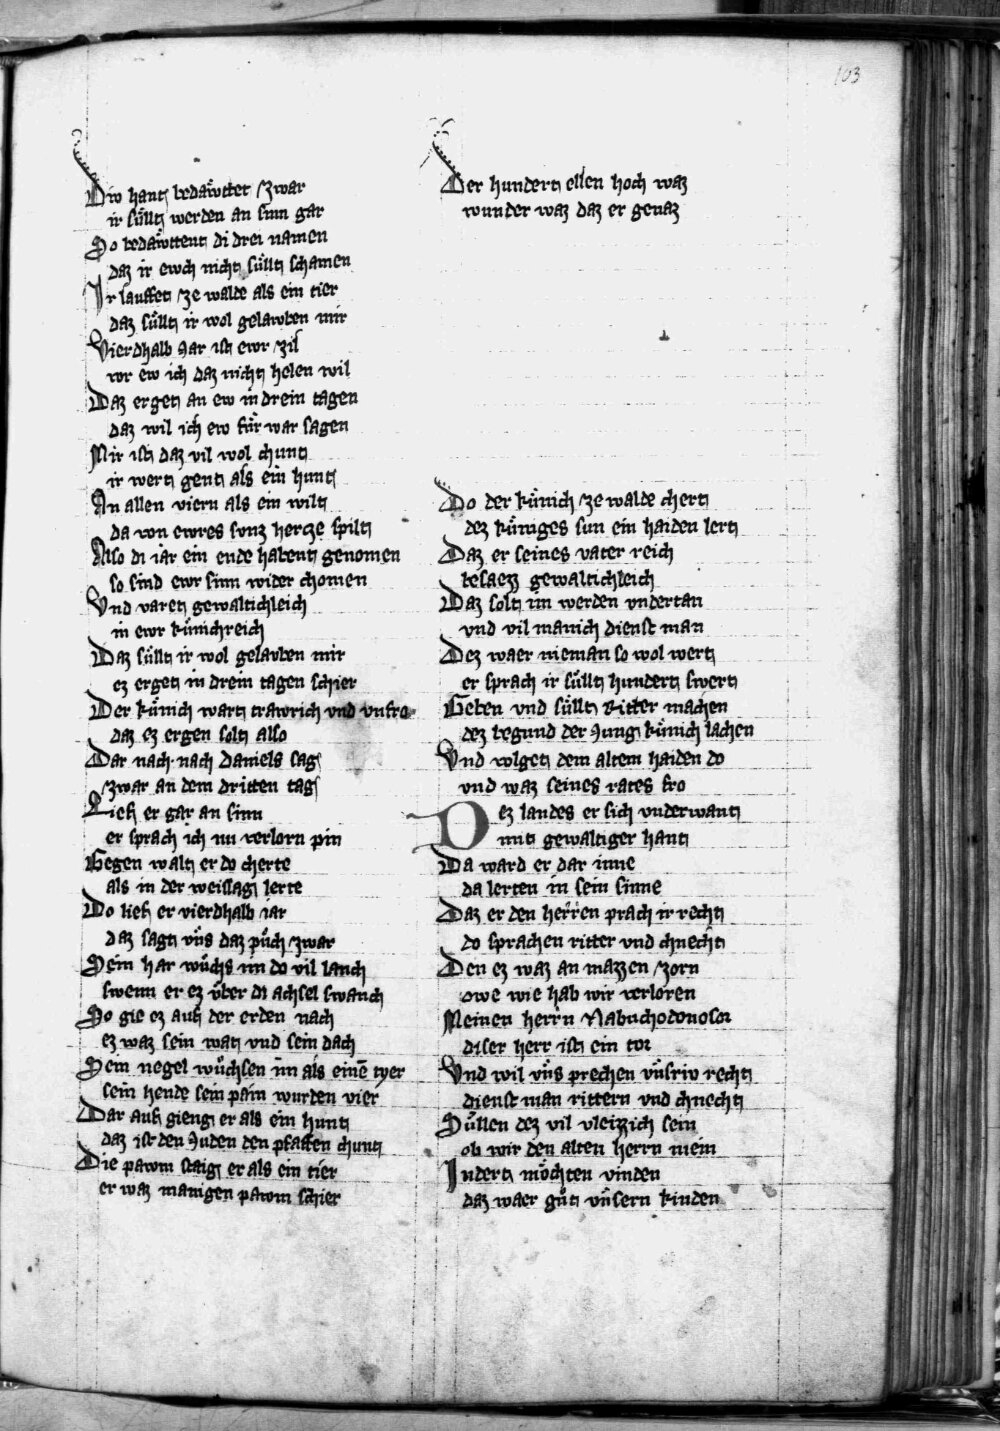 103
Diw hant bedaẘttet zwar
ir su̇llt werden an sinn gar
So bedaẘttent di drei namen
daz ir ewch nicht su̇llt schamen
Ir lauffet ze walde als ein tier
daz su̇llt ir wol gelawben mir
Vierdhalb jar ist ewr zil
vor ew ich daz nicht helen wil
Daz erget an ew in drein tagen
daz wil ich ew fu̇r war sagen
Mir ist daz vil wol chunt
ir wert gent als ein hunt
An allen viern als ein wilt
da von ewres sunz hercze spilt
Also di iar ein ende habent genomen
so sind ewr sinn wider chomen
Vnd varet gewaltichleich
in ewr ku̇nichreich
Daz su̇llt ir wol gelauben mir
ez erget in drein tagen schier
Der ku̇nich wart trawrich vnd vnfro
daz ez ergen solt also
Dar nach nach daniels sag
zwar an dem dritten tag
Lief er gar an sinn
er sprach ich nu verlorn pin
Gegen walt er do cherte
als in der weissag lerte
Do lief er vierdhalb iar
daz sagt vns daz puch zwar
Sein har wuchs im do vil lanch
swenn er ez vber di achsel swanch
So gie ez auf der erden nach
ez waz sein wat vnd sein dach
Sein negel wuchsen im als eine tyer
sein hende sein pain wurden vier
Dar auf gieng er als ein hunt
daz ist den juden den pfaffen chunt
Die pawm staig er als ein tier
er waz manigen pawm schier
Der hundert ellen hoch waz
wunder waz daz er genaz
Do der ku̇nich ze walde chert
dez ku̇niges sun ein haiden lert
Daz er seines vater reich
besaezz gewaltichleich
Daz solt im werden vndertan
vnd vil manich dienst man
Dez waer nieman so wol wert
er sprach ir su̇llt hundert swert
Geben vnd su̇llt ritter machen
dez begund der jung ku̇nich lachen
Vnd volget dem altem haiden do
vnd waz seines rates fro
Dez landes er sich vnderwant
mit gewaltiger hant
Da ward er dar inne
da lerten in sein sinne
Daz er den herren prach ir recht
do sprachen ritter vnd chnecht
Den ez waz an mazzen zorn
owe wie hab wir verloren
Meinen herrn Nabuchodonosor
diser herr ist ein tor
Vnd wil vns prechen vnsriv recht
dienst man rittern vnd chnecht
Sullen dez vil vleizzich sein
ob wir den alten herrn mein
Indert möchten vinden
daz waer gut vnsern kinden